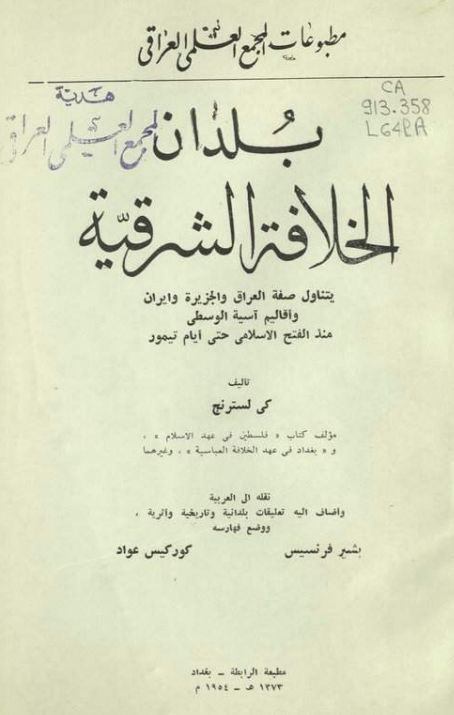 مطبوعات المجمع العلمي العراقي
هدية
المجمع العلمي العراقي
CA
913.358
L64PA
بلدان
الخلافة الشرقية
يتناول صفة العراق والجزيرة وايران
وأقاليم آسية الوسطى
منذ الفتح الاسلامى حتى أيام تيمور
تاليف
كى لسترنج
مؤلف كتاب « فلسطين فى عهد الاسلام » ،
و « بغداد فى عهد الخلافة العباسية » ، وغيرهما
نقله الى العربية
وأضاف اليه تعليقات بلدانية وتاريخية وأثرية ،
ووضع فهارسه
بشير فرنسيس كوركيس عواد
مطبعة الرابطة – بغداد
١٣٧٣ هـ – ١٩٥٤ م